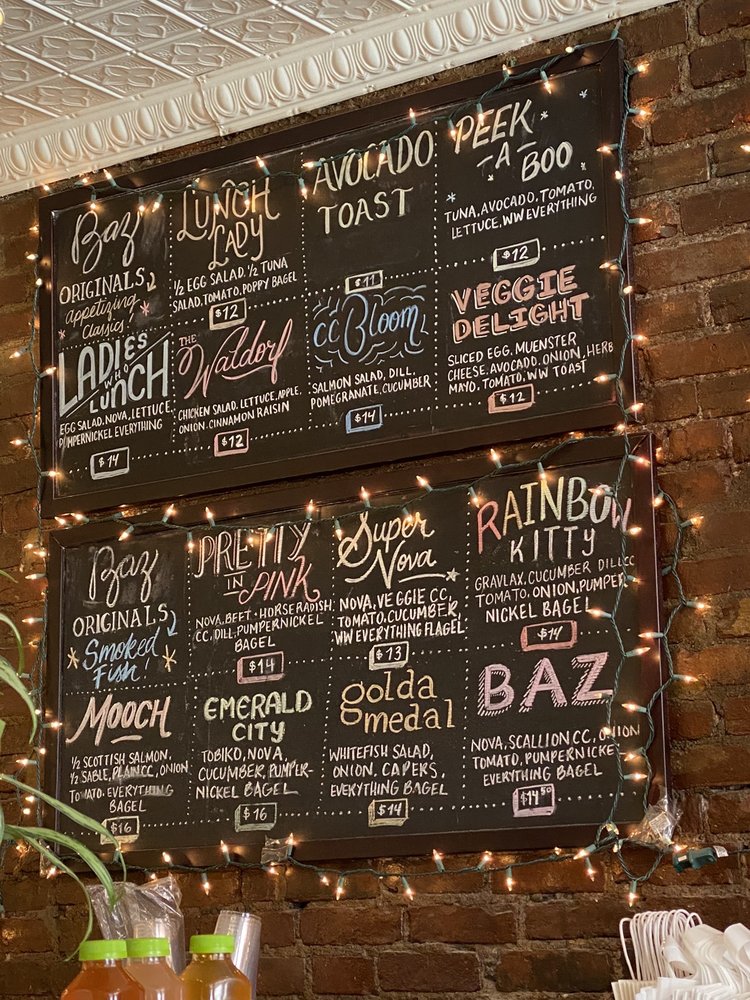 Baz
ORIGINALS
appetizing
Classics
LUNCH
LADY
1/2 EGG SALAD, 1/2 TUNA
SALAD, TOMATO, POPPY BAGEL
$12
AVOCADO
TOAST
$11
PEEK
-A-
BOO
TUNA, AVOCADO, TOMATO,
LETTUCE, WW EVERYTHING
$12
LADIES
WHO
LUNCH
EGG SALAD, NOVA, LETTUCE,
PUMPERNICKEL EVERYTHING
$14
THE
Waldorf
CHICKEN SALAD, LETTUCE, APPLE,
ONION, CINNAMON RAISIN
$12
CC Bloom
SALMON SALAD, DILL,
POMEGRANATE, CUCUMBER
$14
VEGGIE
DELIGHT
SLICED EGG, MUENSTER
CHEESE, AVOCADO, ONION, HERB
MAYO, TOMATO, WW TOAST
$12
Baz
ORIGINALS
Smoked
Fish!
PRETTY
IN
PINK
NOVA, BEET + HORSERADISH
CC, DILL, PUMPERNICKEL
BAGEL
$14
Super
Nova
NOVA, VEGGIE CC,
TOMATO, CUCUMBER,
WW EVERYTHING FLAGEL
$13
RAINBOW
KITTY
GRAVLAX, CUCUMBER DILL CC
TOMATO, ONION, PUMPER-
NICKEL BAGEL
$14
MOOCH
1/2 SCOTTISH SALMON,
1/2 SABLE, PLAIN CC, ONION
TOMATO, EVERYTHING
BAGEL
$16
EMERALD
CITY
TOBIKO, NOVA,
CUCUMBER, PUMPER-
NICKEL BAGEL
$16
golda
medal
WHITEFISH SALAD,
ONION, CAPERS,
EVERYTHING BAGEL
$14
BAZ
NOVA, SCALLION CC, ONION
TOMATO, PUMPERNICKEL
EVERYTHING BAGEL
$14.50